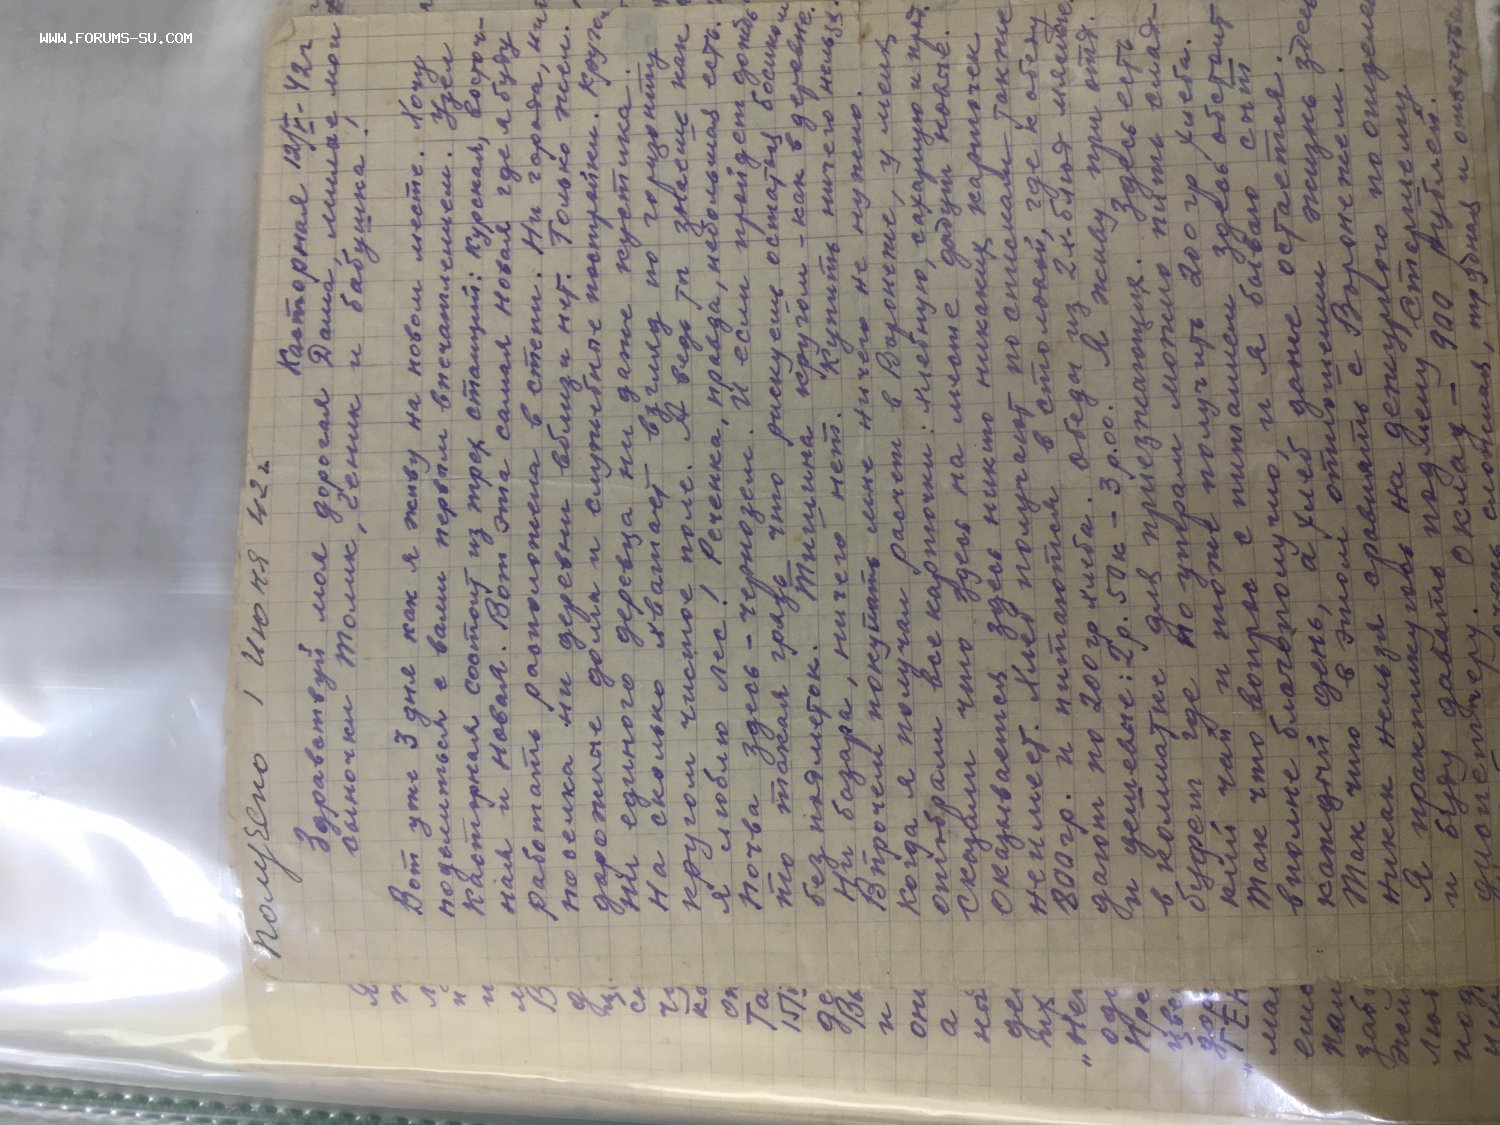 WWW.FORUMS-SU.COM
Получено 1 Июня 42г
Касторная 12/V-42г
Здравствуй моя дорогая Дама, милые мои
сыночки Толик, Геник и бабушка!
Вот уже 3 дня как я живу на новом месте. Хочу
поделиться с вами первым впечатлением. Узел
Касторная состоит из трех станций: Курская, Восточ-
ная и Новая. Вот эта самая Новая где я буду
работать расположена в степи. Ни города, ни
поселка ни деревни вблизи нет. Только жел.
дорожные дома и служебные постройки. Кругом
ни единого деревца ни даже кустика.
На сколько хватает взгляд по горизонту
кругом чистое поле. А ведь ты знаешь как
я люблю лес! Речёнка, правда, небольшая есть.
Почва здесь - чернозем. И если пройдет дождь
то такая грязь что рискуешь остаться босиком
без подметок. Тишина кругом - как в деревне.
Ни базара, ничего нет. Купить ничего нельзя.
Впрочем покупать мне ничего не нужно.
Когда я получал расчет в Воронеже, у меня
отобрали все карточки: хлебную, сахарную и прод.
Сказали что здесь на месте дадут новые.
Оказывается здесь никто никаких карточек
не имеет. Хлеб получают по спискам также
800гр. и питаются в столовой, где к обеду
дают по 200гр хлеба. Обеды из 2х блюд мясные
и дешевые: 2р.50к - 3р.00. Я живу при отд.
в комнате для приезжающих. Здесь есть
буфет где по утрам можно пить слад-
кий чай и тоже получить 200гр хлеба.
Так что вопрос с питанием здесь обстоит
вполне благополучно, и я бываю сыт
каждый день, а хлеб даже остается.
Так что в этом отношении жизнь здесь
никак нельзя сравнить с Воронежем.
Я практикуюсь на дежурного по отделен
и буду давать подмену старшему
диспетчеру. Оклад - 900 рублей.
очень сложная, трудная и ответств